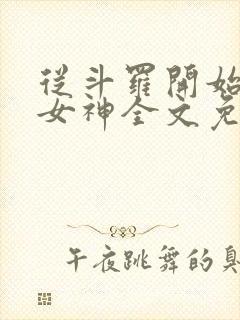 從斗羅開始
女神全文免
午夜跳舞的臭